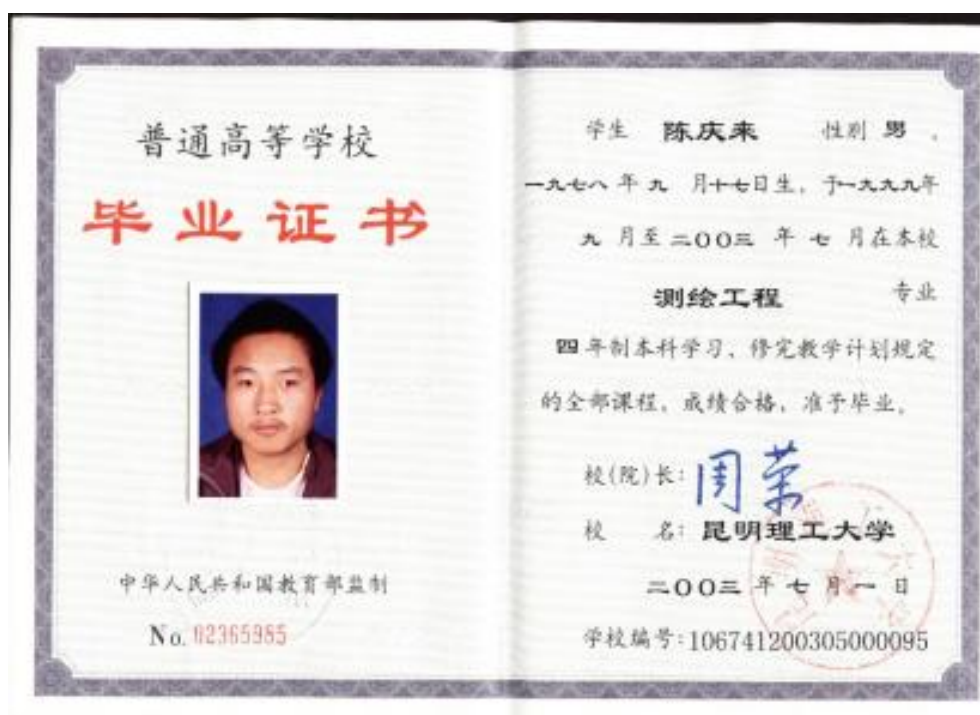 普通高等学校
毕业证书
中华人民共和国教育部监制
No. 02365985
学生 陈庆来 性别 男 ,
一九七八 年 九 月十七日生, 于一九九九年
九 月至 二00三 年 七 月在本校
测绘工程 专业
四 年制本科学习, 修完教学计划规定
的全部课程, 成绩合格, 准予毕业。
校(院)长: 周荣
校 名: 昆明理工大学
二00三 年 七 月 一 日
学校编号:106741200305000095